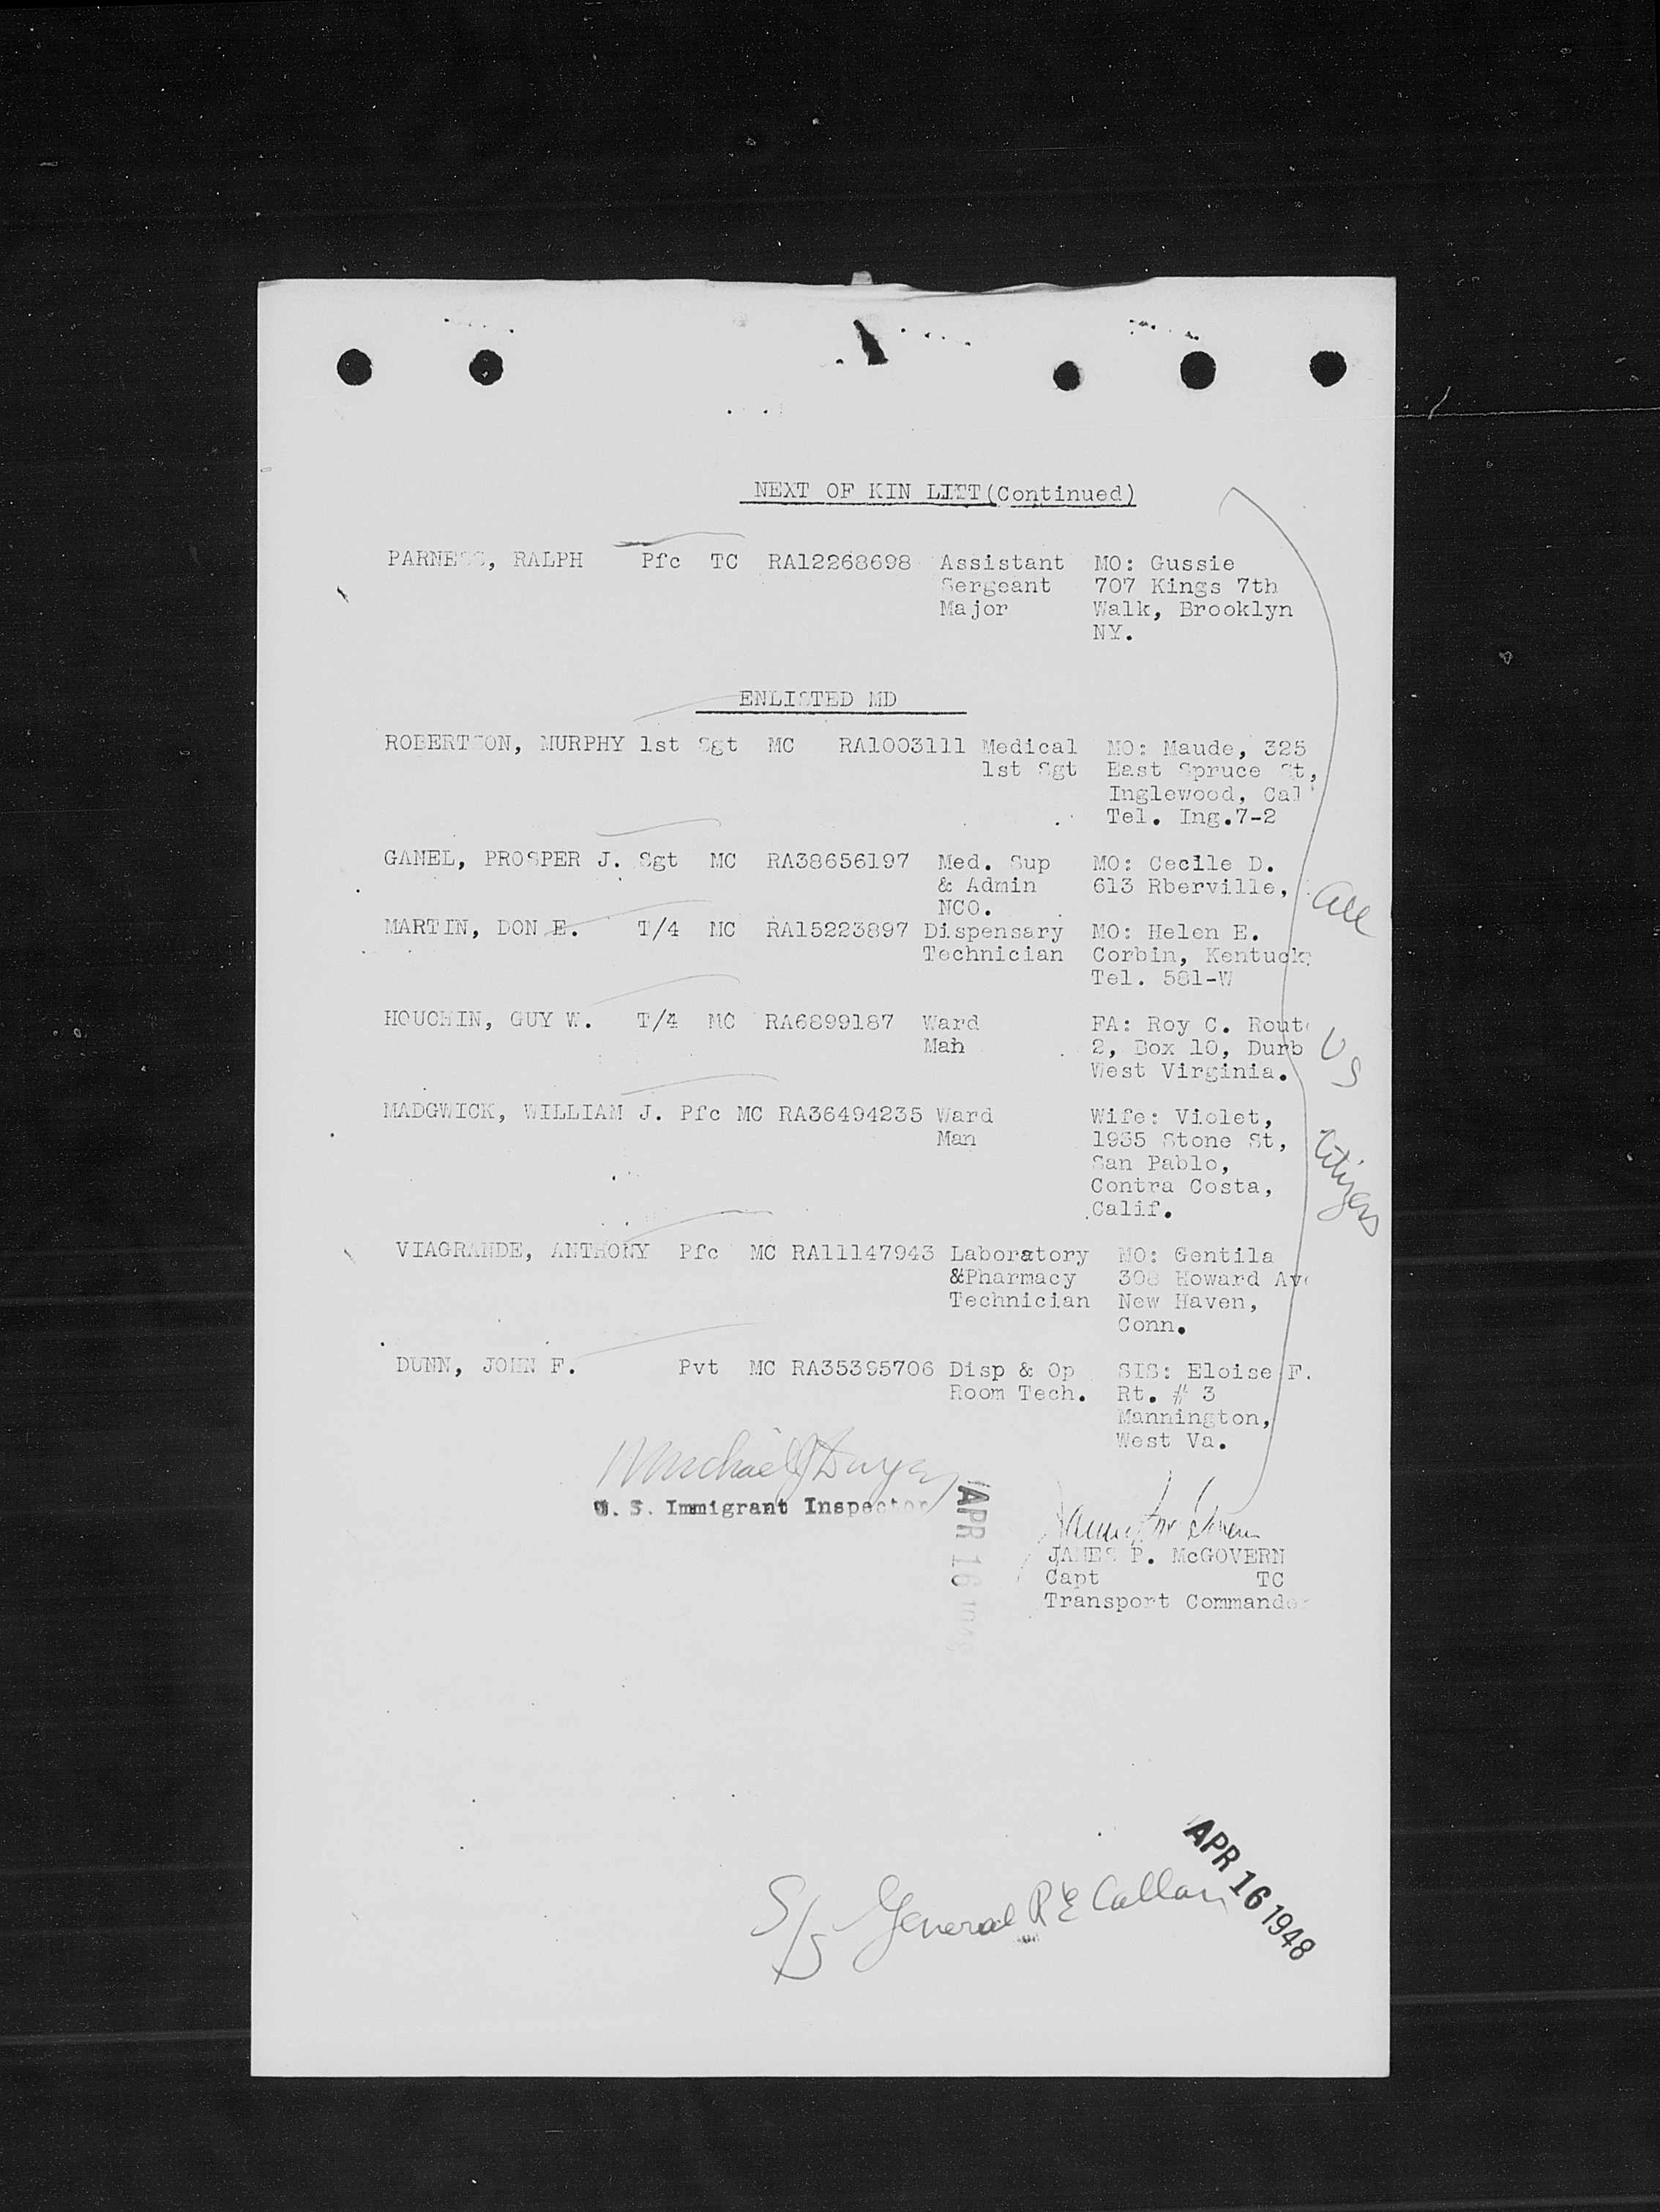 NEXT OF KIN LITT(Continued)
PARNESS, RALPH Pfc TC RA12268698 Assistant MO: Gussie
Sergeant 707 Kings 7th
Major Walk, Brooklyn
NY.
ENLISTED MD
ROBERTSON, MURPHY 1st Sgt MC RA1003111 Medical MO: Maude, 325
1st Sgt East Spruce St,
Inglewood, Cal
Tel. Ing.7-2
GANEL, PROSPER J. Sgt MC RA38656197 Med. Sup MO: Cecile D.
& Admin 613 Rberville,
NCO.
MARTIN, DON E. T/4 MC RA15223897 Dispensary MO: Helen E.
Technician Corbin, Kentuck
Tel. 581-W
HOUCHIN, GUY W. T/4 MC RA6899187 Ward FA: Roy C. Rout
Man 2, Box 10, Durb
West Virginia.
MADGWICK, WILLIAM J. Pfc MC RA36494235 Ward Wife: Violet,
Man 1935 Stone St,
San Pablo,
Contra Costa,
Calif.
VIAGRANDE, ANTHONY Pfc MC RA11147943 Laboratory MO: Gentila
&Pharmacy 308 Howard Av
Technician New Haven,
Conn.
DUNN, JOHN F. Pvt MC RA35395706 Disp & Op SIS: Eloise F.
Room Tech. Rt. # 3
Mannington,
West Va.
all
US
Citizens
Michael J Dwyer
U. S. Immigrant Inspector
APR 16 1948
JAMES P. McGOVERN
Capt TC
Transport Commander
S/S General R E Callan
APR 16 1948